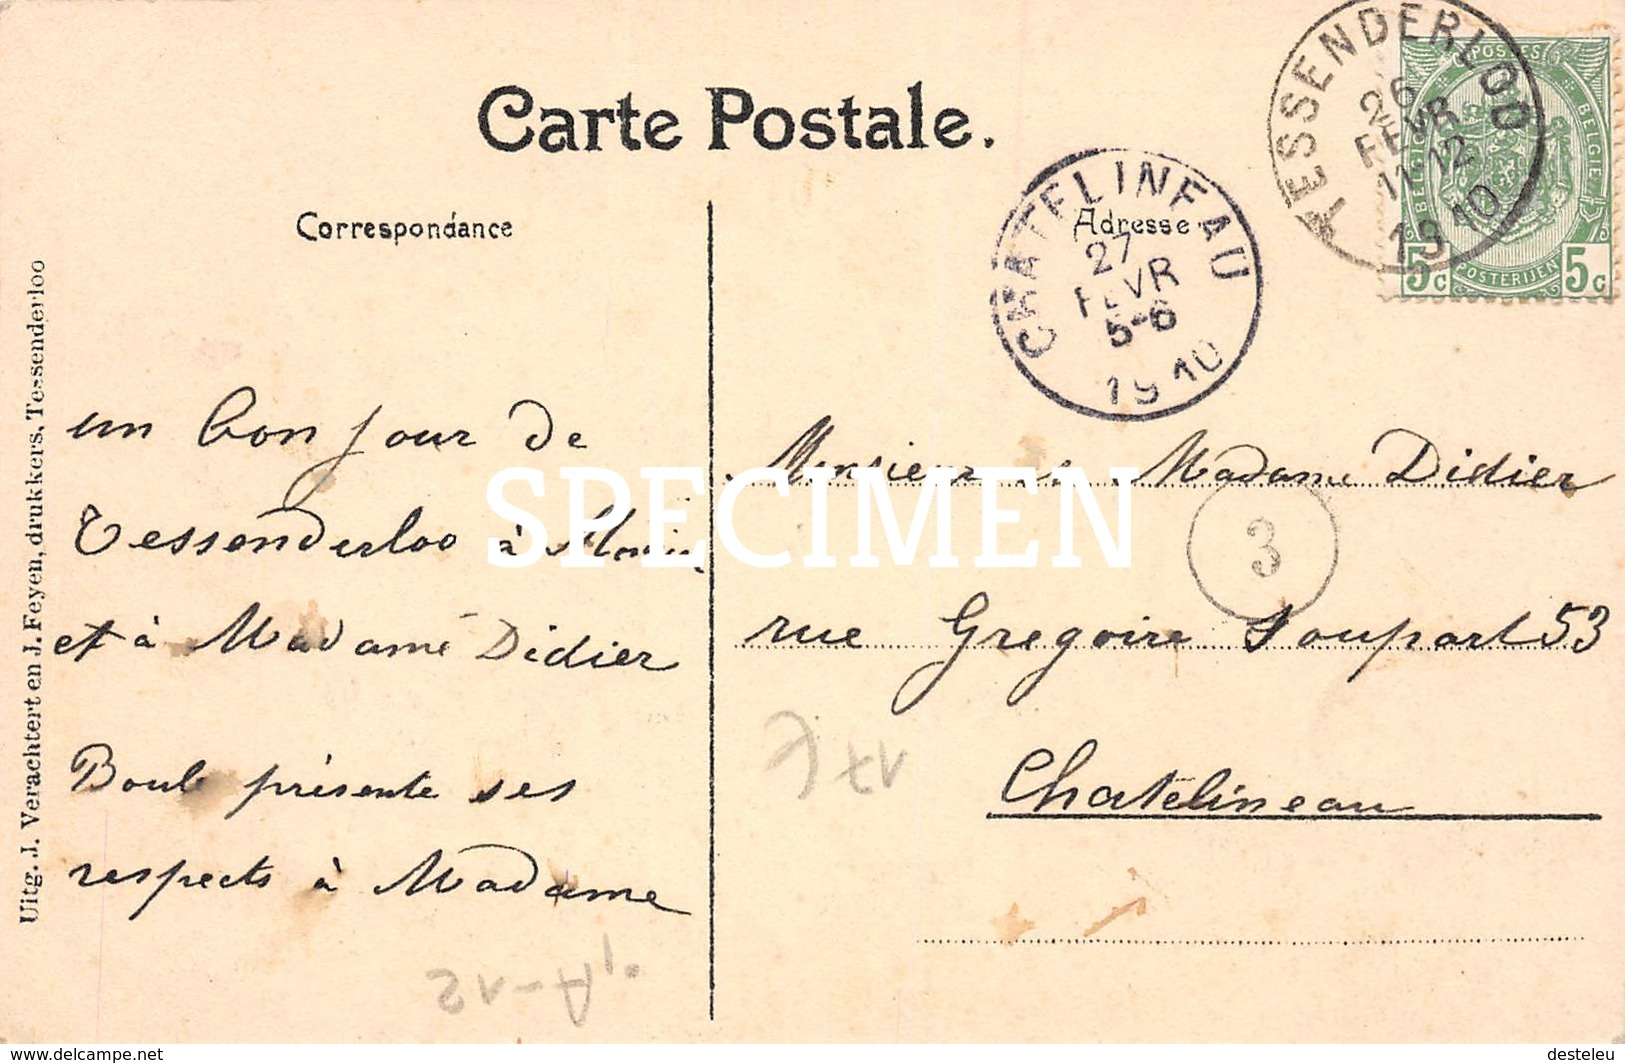 Carte Postale.
Correspondance
Adresse
TESSENDERLOO
26
FEVR
11-12
1910
CHATELINEAU
27
FEVR
5-6
1910
POSTES
BELGIQUE
BELGIË
5c
POSTERIJEN
5c
Uitg. J. Verachtert en J. Feyen, drukkers, Tessenderloo
un bonjour de
Tessenderloo à
et à Madame Didier
Boule présente ses
respects à Madame
Monsieur et Madame Didier
3
rue Gregoire Soupart 53
Chatelineau
17€
A-12
SPECIMEN
www.delcampe.net
desteleu